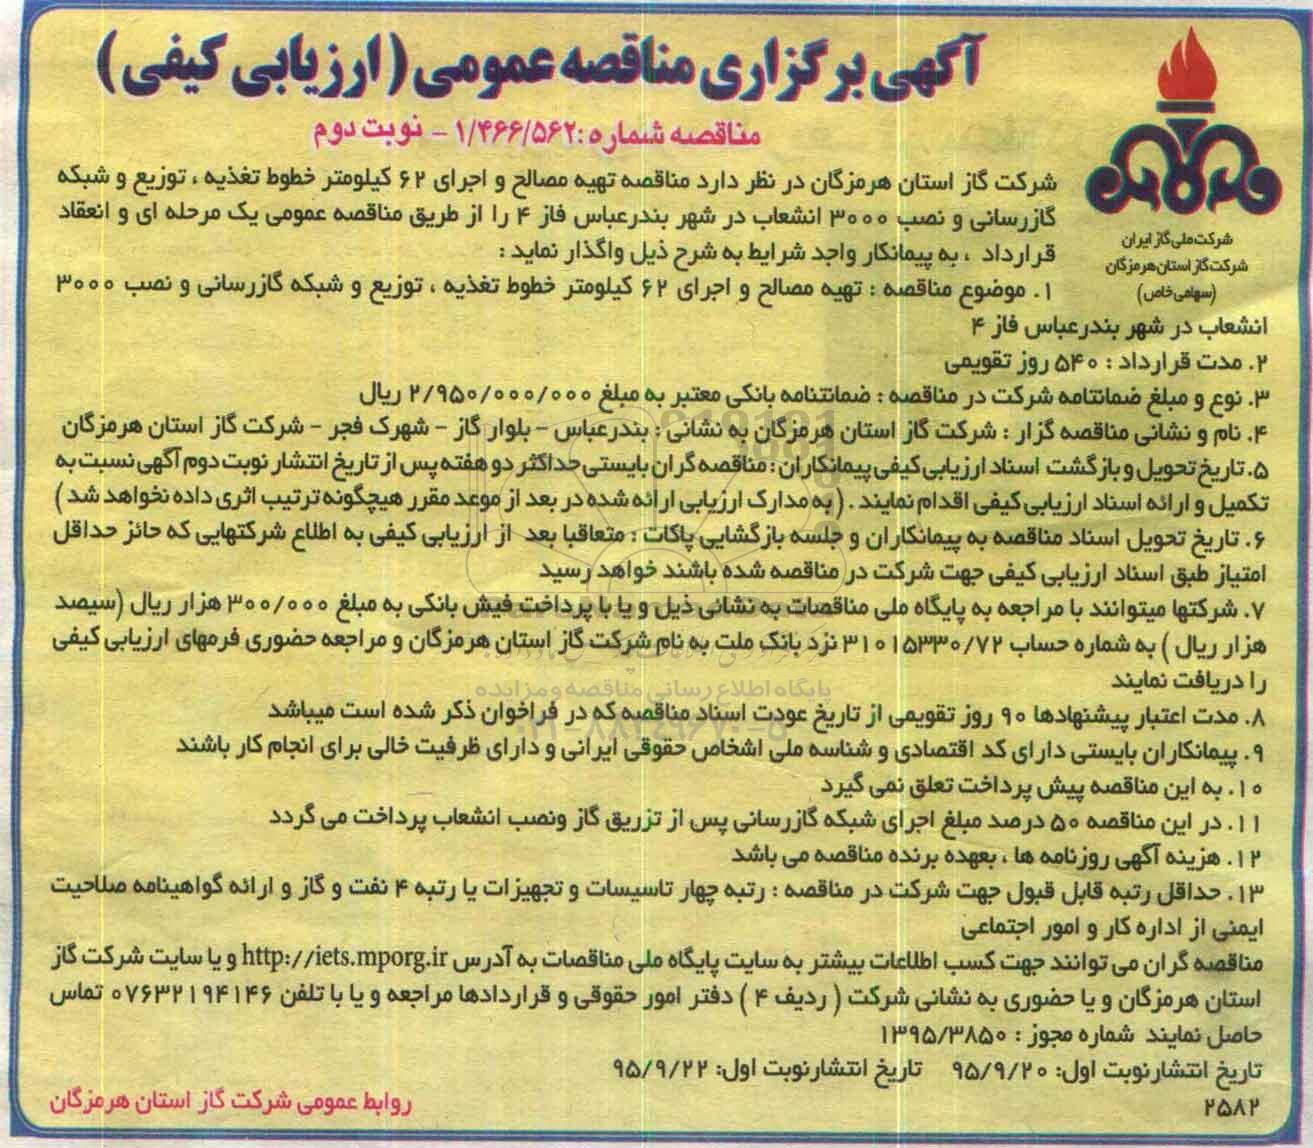 آگهی برگزاری مناقصه عمومی (ارزیابی کیفی)
مناقصه شماره :۱/۴۶۶/۵۶۲ - نوبت دوم
شرکت ملی گاز ایران
شرکت گاز استان هرمزگان
(سهامی خاص)
شرکت گاز استان هرمزگان در نظر دارد مناقصه تهیه مصالح و اجرای ۶۲ کیلومتر خطوط تغذیه ، توزیع و شبکه
گازرسانی و نصب ۳۰۰۰ انشعاب در شهر بندرعباس فاز ۴ را از طریق مناقصه عمومی یک مرحله ای و انعقاد
قرارداد ، به پیمانکار واجد شرایط به شرح ذیل واگذار نماید :
۱. موضوع مناقصه : تهیه مصالح و اجرای ۶۲ کیلومتر خطوط تغذیه ، توزیع و شبکه گازرسانی و نصب ۳۰۰۰
انشعاب در شهر بندرعباس فاز ۴
۲. مدت قرارداد : ۵۴۰ روز تقویمی
۳. نوع و مبلغ ضمانتنامه شرکت در مناقصه : ضمانتنامه بانکی معتبر به مبلغ ۲/۹۵۰/۰۰۰/۰۰۰ ریال
۴. نام و نشانی مناقصه گزار : شرکت گاز استان هرمزگان به نشانی : بندرعباس - بلوار گاز - شهرک فجر - شرکت گاز استان هرمزگان
۵. تاریخ تحویل و بازگشت اسناد ارزیابی کیفی پیمانکاران : مناقصه گران بایستی حداکثر دو هفته پس از تاریخ انتشار نوبت دوم آگهی نسبت به
تکمیل و ارائه اسناد ارزیابی کیفی اقدام نمایند . ( به مدارک ارزیابی ارائه شده در بعد از موعد مقرر هیچگونه ترتیب اثری داده نخواهد شد )
۶. تاریخ تحویل اسناد مناقصه به پیمانکاران و جلسه بازگشایی پاکات : متعاقبا بعد از ارزیابی کیفی به اطلاع شرکتهایی که حائز حداقل
امتیاز طبق اسناد ارزیابی کیفی جهت شرکت در مناقصه شده باشند خواهد رسید
۷. شرکتها میتوانند با مراجعه به پایگاه ملی مناقصات به نشانی ذیل و یا با پرداخت فیش بانکی به مبلغ ۳۰۰/۰۰۰ هزار ریال (سیصد
هزار ریال ) به شماره حساب ۳۱۰۱۵۳۳۰/۷۲ نزد بانک ملت به نام شرکت گاز استان هرمزگان و مراجعه حضوری فرمهای ارزیابی کیفی
را دریافت نمایند
پایگاه اطلاع رسانی مناقصه و مزایده
۸. مدت اعتبار پیشنهادها ۹۰ روز تقویمی از تاریخ عودت اسناد مناقصه که در فراخوان ذکر شده است میباشد
۹. پیمانکاران بایستی دارای کد اقتصادی و شناسه ملی اشخاص حقوقی ایرانی و دارای ظرفیت خالی برای انجام کار باشند
۱۰. به این مناقصه پیش پرداخت تعلق نمی گیرد
۱۱. در این مناقصه ۵۰ درصد مبلغ اجرای شبکه گازرسانی پس از تزریق گاز ونصب انشعاب پرداخت می گردد
۱۲. هزینه آگهی روزنامه ها ، بعهده برنده مناقصه می باشد
۱۳. حداقل رتبه قابل قبول جهت شرکت در مناقصه : رتبه چهار تاسیسات و تجهیزات یا رتبه ۴ نفت و گاز و ارائه گواهینامه صلاحیت
ایمنی از اداره کار و امور اجتماعی
مناقصه گران می توانند جهت کسب اطلاعات بیشتر به سایت پایگاه ملی مناقصات به آدرس http://iets.mporg.ir و یا سایت شرکت گاز
استان هرمزگان و یا حضوری به نشانی شرکت ( ردیف ۴ ) دفتر امور حقوقی و قراردادها مراجعه و یا با تلفن ۰۷۶۳۲۱۹۴۱۴۶ تماس
حاصل نمایند شماره مجوز : ۱۳۹۵/۳۸۵۰
تاریخ انتشارنوبت اول: ۹۵/۹/۲۰ تاریخ انتشارنوبت اول: ۹۵/۹/۲۲
۲۵۸۲
روابط عمومی شرکت گاز استان هرمزگان